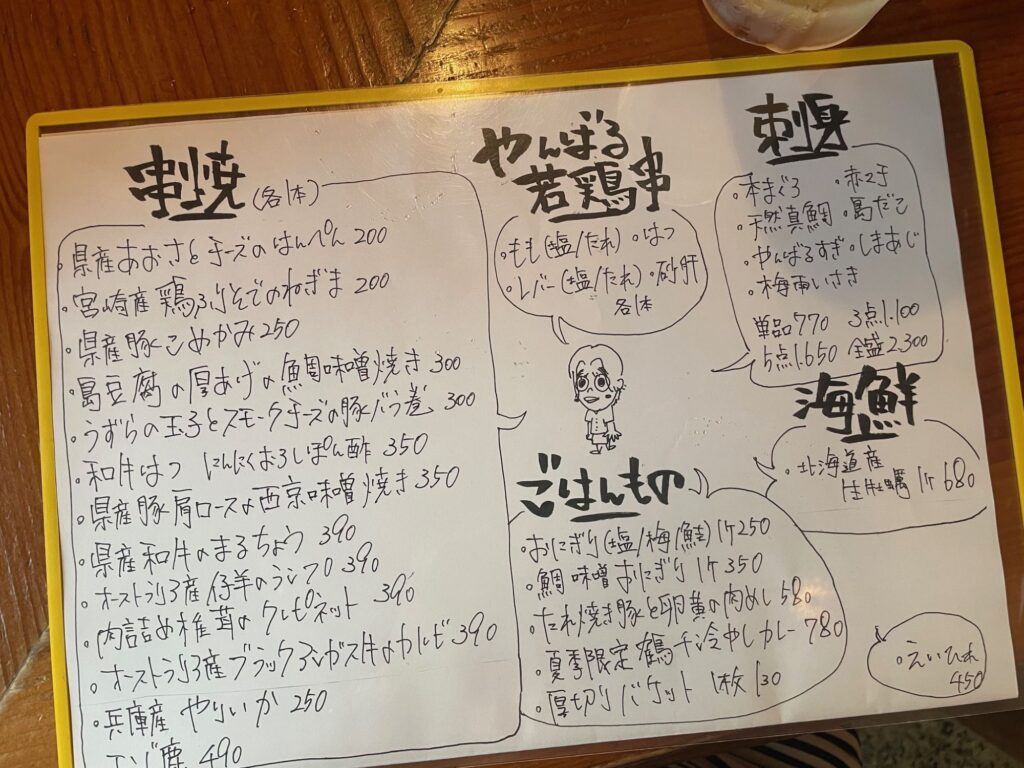 串焼 (各1本)
・県産あおさとチーズのはんぺん 200
・宮崎産 鶏ふりそでのねぎま 200
・県産豚こめかみ 250
・島豆腐の厚あげの魚周味噌焼き 300
・うずらの玉子とスモークチーズの豚バラ巻 300
・和牛はつ にんにくおろしぽん酢 350
・県産豚肩ロースの西京味噌焼き 350
・県産和牛のまるちょう 390
・オーストラリア産 仔羊のランプ 390
・肉詰め椎茸のクレピネット 390
・オーストラリア産ブラックアンガス牛のカルビ 390
・兵庫産 やりいか 250
エゾ鹿 490
やんばる
若鶏串
・もも(塩/たれ)・はつ
・レバー(塩/たれ)・砂肝
各1本
ごはんもの
・おにぎり(塩/梅/鮭) 1ケ250
・鯛味噌おにぎり 1ケ350
・たれ焼き豚と卵黄の肉めし 580
・夏季限定 鶴千冷やしカレー 780
・厚切りバケット 1枚 130
刺身
・本まぐろ ・赤マチ
・天然真鯛 ・島だこ
・やんばるすぎ ・しまあじ
・梅雨いさき
単品770 3点1.100
5点1.650 全盛2.300
海鮮
・北海道産
生牡蠣 1ケ 680
・えいひれ
450